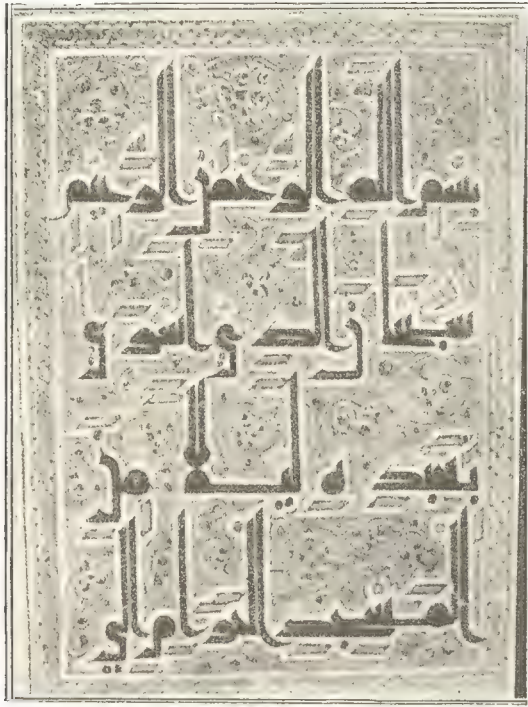 بسم الله الرحمن الرحيم
سبحان الذى اسرى
بعبده ليلا من
المسجد الحرام الى